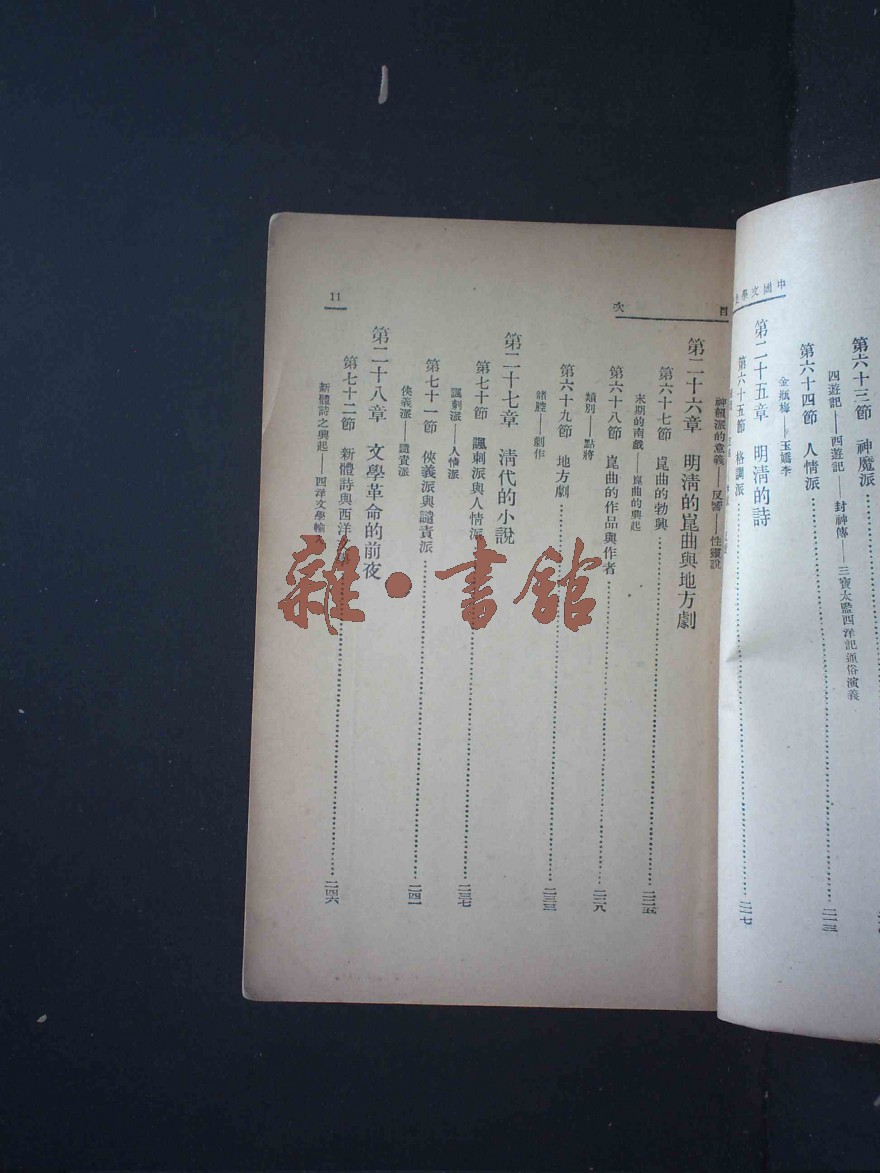 中國文學史
第六十三節 神魔派
四遊記——西遊記——封神傳——三寶太監西洋記通俗演義
第六十四節 人情派……二一三
金瓶梅——玉嬌李
第二十五章 明清的詩
第六十五節 格調派……二一七
目次
神韻派的意義——反響——性靈說
第二十六章 明清的崑曲與地方劇
第六十七節 崑曲的勃興……二二五
宋期的南戲——崑曲的興起
第六十八節 崑曲的作品與作者……二二八
類別——點將
第六十九節 地方劇……二三三
諸腔——劇作
第二十七章 清代的小說
第七十節 諷刺派與人情派……二三七
諷刺派——人情派
第七十一節 俠義派與譴責派……二四一
俠義派——譴責派
第二十八章 文學革命的前夜
第七十二節 新體詩與西洋文學……二四六
新體詩之興起——西洋文學輸入
11
雜·書館